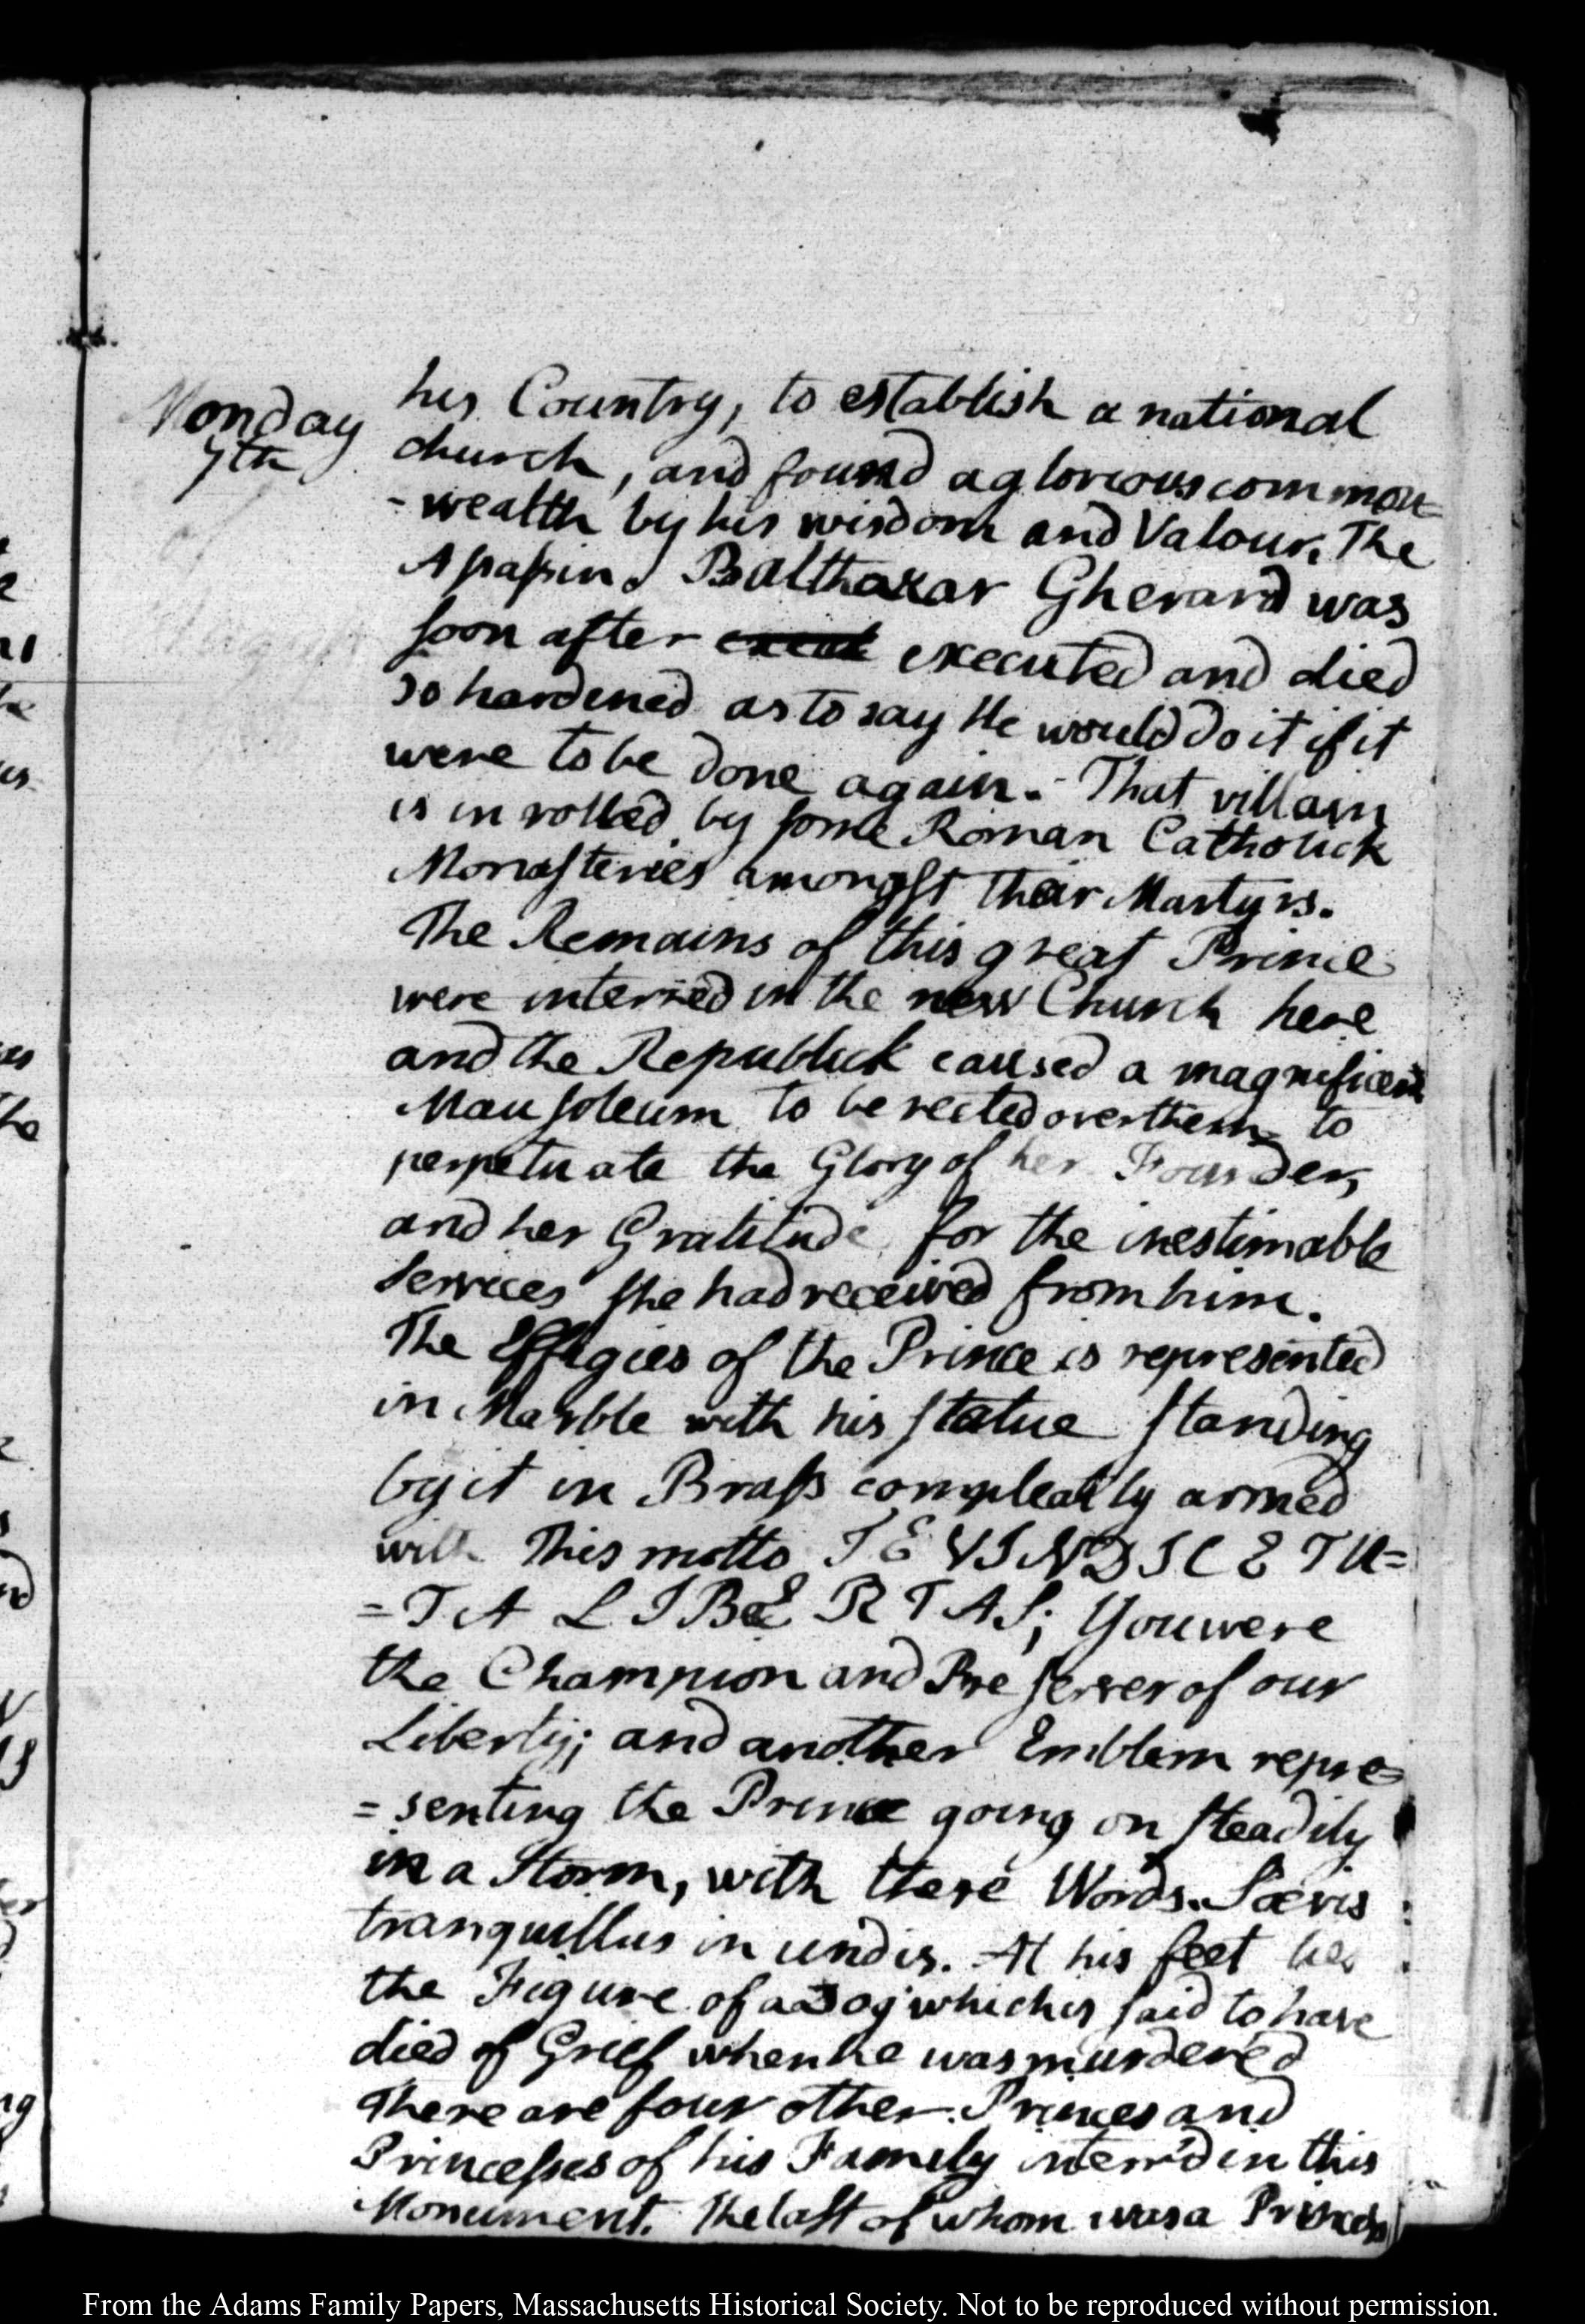 Monday
7th
his Country, to establish a national
church, and found a glorious common=
-wealth by his wisdom and Valour. The
Assassin Balthazar Gherard was
soon after executed and died
so hardened as to say He would do it if it
were to be done again. - That villain
is in rolled by some Roman Catholick
Monasteries amongst their Martyrs.
The Remains of this great Prince
were interred in the new Church here
and the Republick caused a magnificent
Mausoleum to be rected over them to
perpetuate the Glory of her Founder,
and her Gratitude for the inestimable
services she had received from him.
The Effigies of the Prince is represented
in Marble with his statue standing
by it in Brass compleatly armed
with This motto TE VINDICE TU=
=TA LIBERTAS; You were
the Champion and Preserver of our
Liberty; and another Emblem repre=
=senting the Prince going on steadily
in a Storm, with these Words. Sævis
tranquillus in undis. At his feet lies
the Figure of a Dog which is said to have
died of Grief when he was murdered
There are four other Princes and
Princesses of his Family interr'd in this
Monument. The last of whom was a Princess
From the Adams Family Papers, Massachusetts Historical Society. Not to be reproduced without permission.